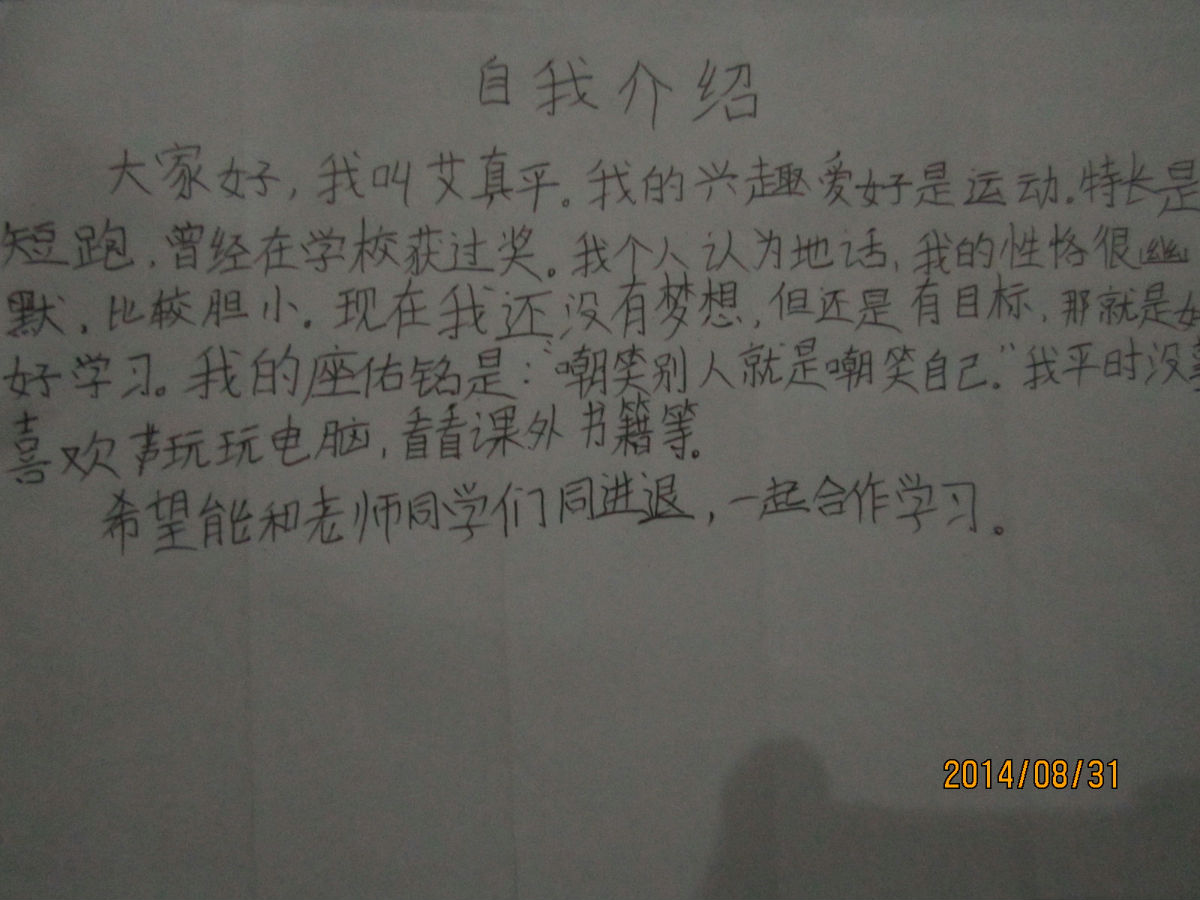 自我介绍
大家好，我叫艾真平。我的兴趣爱好是运动。特长是
短跑，曾经在学校获过奖。我个人认为地话，我的性恪很幽
默，比较胆小。现在我还没有梦想，但还是有目标，那就是好
好学习。我的座佑铭是：“嘲笑别人就是嘲笑自己。”我平时没
喜欢声玩玩电脑，看看课外书籍等。
希望能和老师同学们同进退，一起合作学习。
2014/08/31